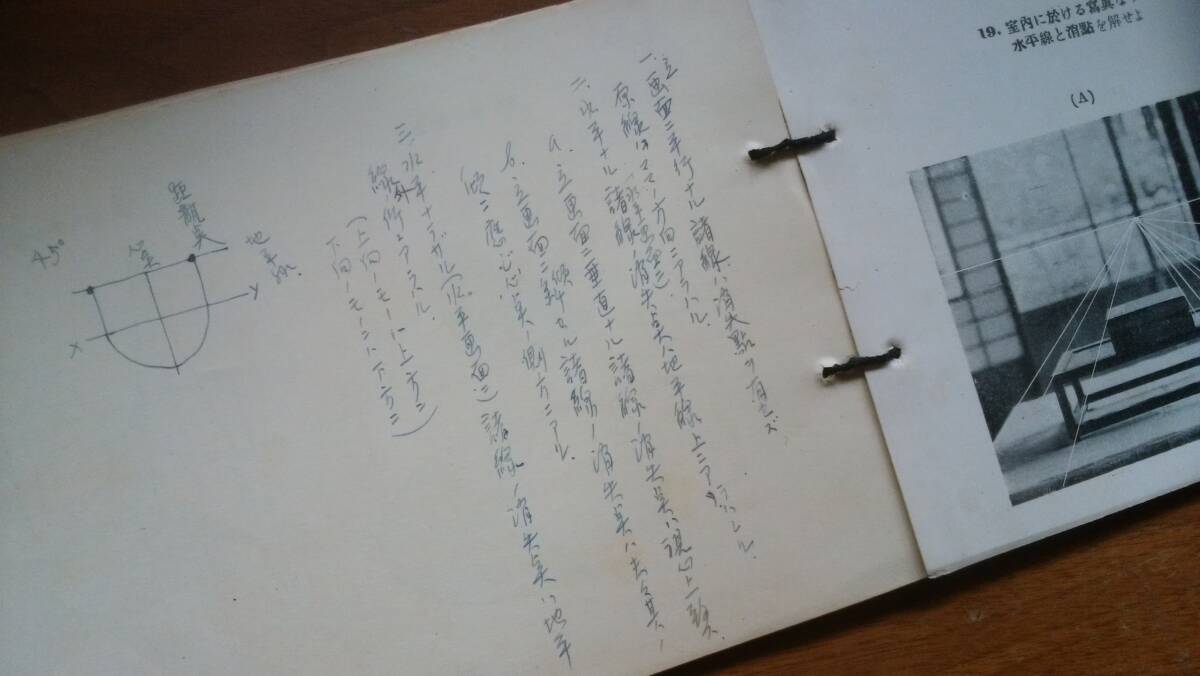 19. 室内に於ける寫真な
水平線と消點を解せよ
(A)
一、立画面ニ平行ナル諸線ハ消失點ヲ有セズ
原線ノママノ方向ニアラハル。
二、水平ナル諸線ノ消失点ハ地平線上ニアラハレル。
(水平画面ニ)
a. 立画面ニ垂直ナル諸線ノ消失点ハ視心上ニ
b. 立画面ニ傾斜セル諸線ノ消失点ハ夫々其ノ
傾ニ應ジ心点ノ側方ニアル。
三、水平ナラザル(水平画面ニ)諸線ノ消失点ハ地平
線外ニ
(上向ノモノハ上方ニ
下向ノモノハ下方ニ)
地平線
距離点
心点
45°
X
Y